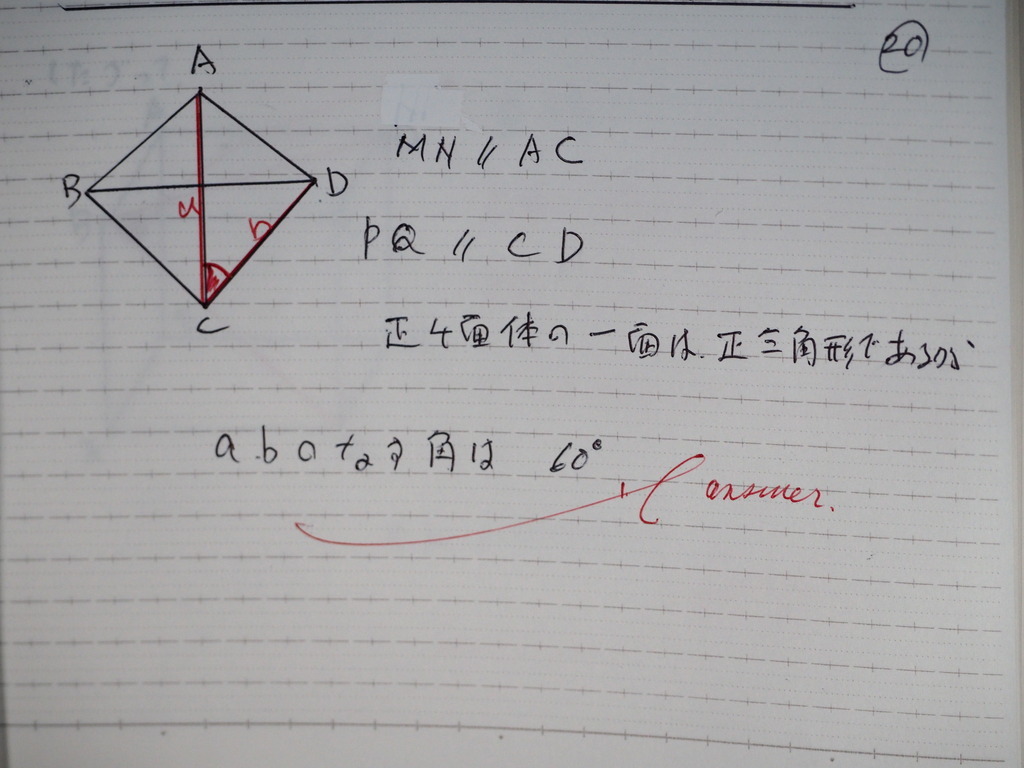 20
A
B
D
a
b
C
MN // AC
PQ // CD
正4面体の一面は、正三角形であるから
a.bのなす角は 60°
answer.